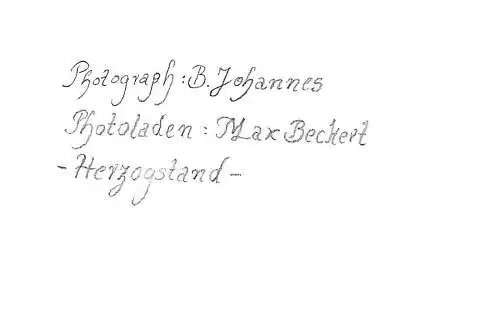 Photograph: B. Johannes
Photoladen: Max Beckert
- Herzogstand -